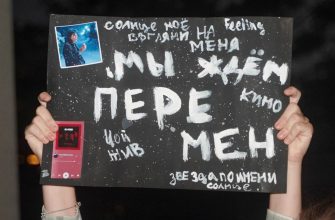 СОЛНЦЕ МОЁ
ВЗГЛЯНИ НА
МЕНЯ
Feeling
МЫ ЖДЁМ
ПЕРЕ
МЕН
КИНО
ЦОЙ
ЖИВ
ЗВЕЗДА ПО ИМЕНИ
СОЛНЦЕ